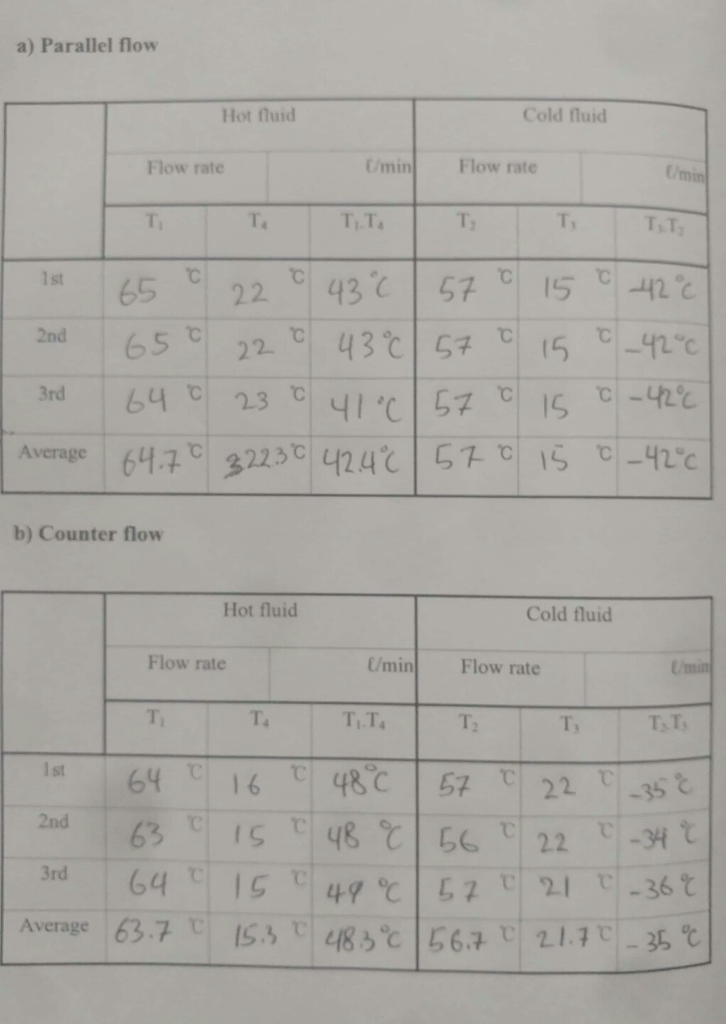 a) Parallel flow
Hot fluid Cold fluid
Flow rate ℓ/min Flow rate ℓ/min
T₁ T₄ T₁-T₄ T₂ T₃ T₃-T₂
1st 65 ℃ 22 ℃ 43°C 57 ℃ 15 ℃ -42°C
2nd 65 ℃ 22 ℃ 43°C 57 ℃ 15 ℃ -42°C
3rd 64 ℃ 23 ℃ 41°C 57 ℃ 15 ℃ -42°C
Average 64.7 ℃ 322.3 ℃ 42.4°C 57 ℃ 15 ℃ -42°C
b) Counter flow
Hot fluid Cold fluid
Flow rate ℓ/min Flow rate ℓ/min
T₁ T₄ T₁-T₄ T₂ T₃ T₂-T₃
1st 64 ℃ 16 ℃ 48°C 57 ℃ 22 ℃ -35°C
2nd 63 ℃ 15 ℃ 48°C 56 ℃ 22 ℃ -34°C
3rd 64 ℃ 15 ℃ 49°C 57 ℃ 21 ℃ -36°C
Average 63.7 ℃ 15.3 ℃ 48.3°C 56.7 ℃ 21.7 ℃ -35°C